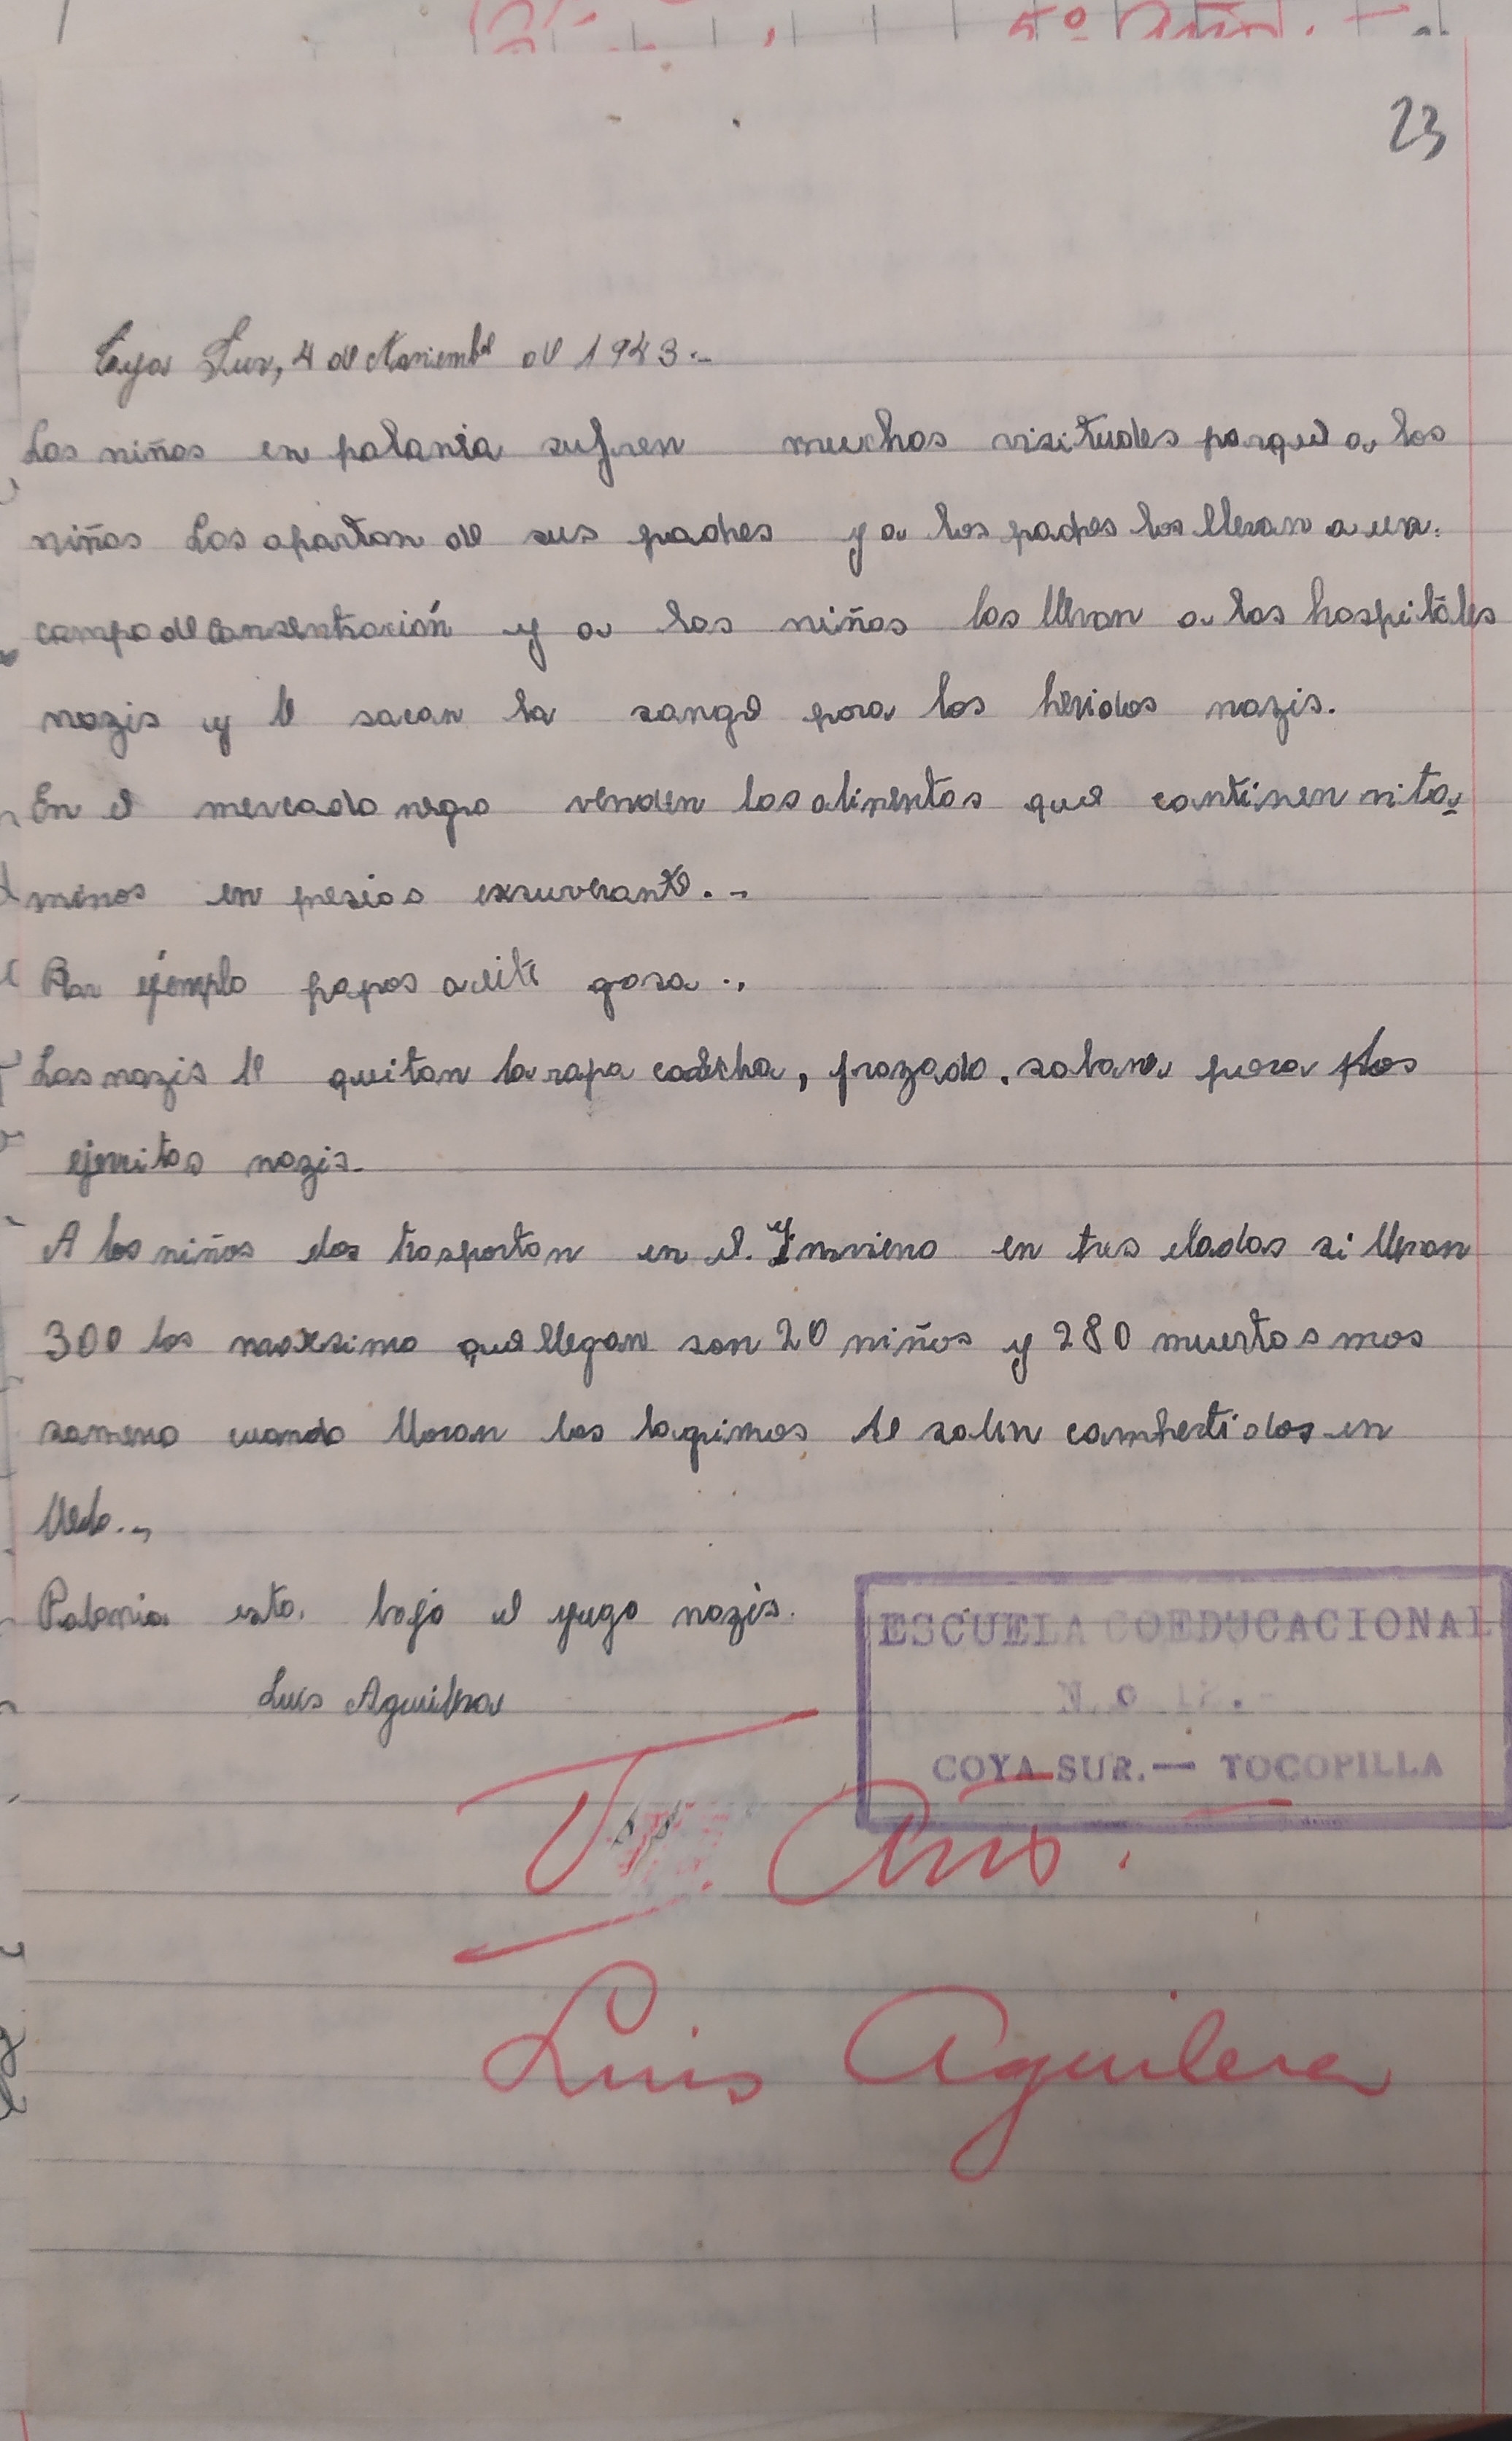 5º
23
Coya Sur, 4 de Noviembre de 1943.-
Los niños en polania sufren muchos visitudes porque a los
niños Los apartan de sus padres y a los padres los llevan a un.
campo de Consentración y a los niños los llevan a los hospitáles
nazis y le sacan la sangre para los heridos nazis.
En el mercado negro venden los alimentos que contienen vita-
minas en presios exsuverante.-
Por ejemplo papas aceite grasa.,
Los nazis le quitan la ropa colcha, frazada. sabana para los
ejercitos nazis.
A los niños los trasportan en el. Ynvierno en tres elados si llevan
300 los maxsimo que llegan son 20 niños y 280 muertos mas
zameno cuando lloran las lagrimas le salen comhertidos en
Uelo.-,
Polonia esta. bajo el yugo nazis.
Luis Aguilera
ESCUELA COEDUCACIONAL
N.o
COYA SUR.— TOCOPILLA
V Año.
Luis Aguilera